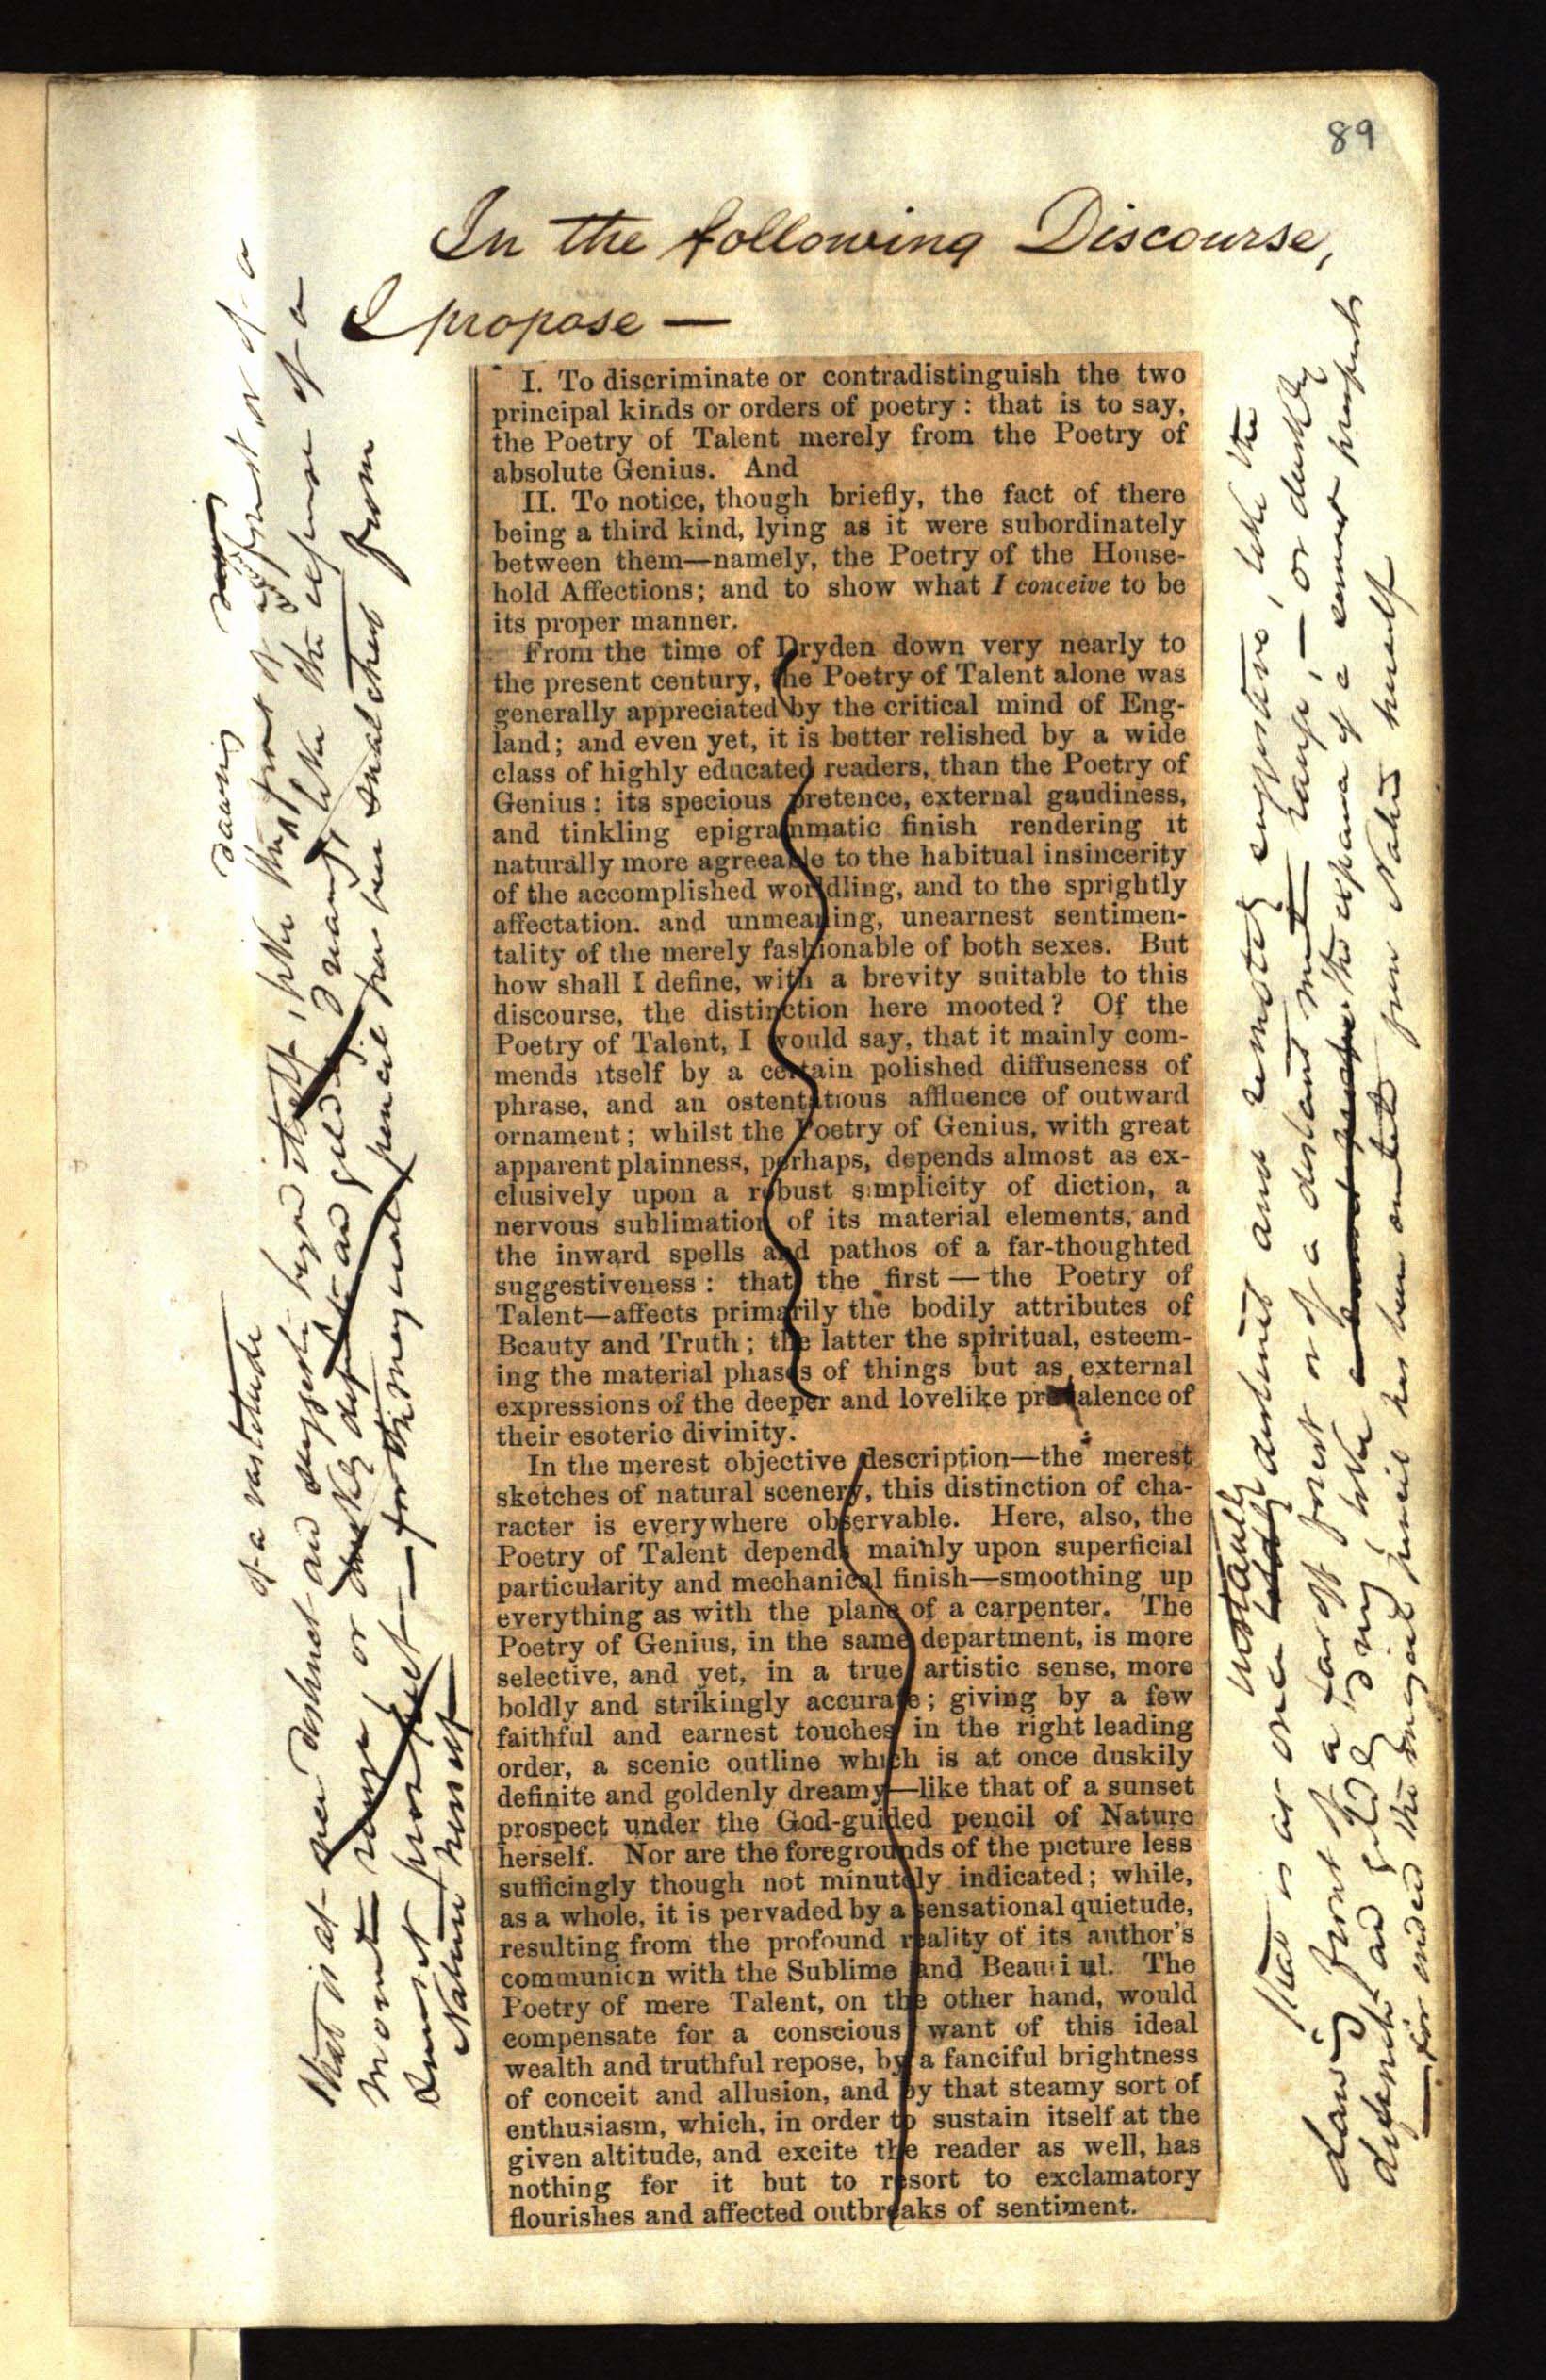 89
In the following Discourse,
I propose —
I. To discriminate or contradistinguish the two
principal kinds or orders of poetry: that is to say,
the Poetry of Talent merely from the Poetry of
absolute Genius. And
II. To notice, though briefly, the fact of there
being a third kind, lying as it were subordinately
between them—namely, the Poetry of the House-
hold Affections; and to show what I conceive to be
its proper manner.
From the time of Dryden down very nearly to
the present century, the Poetry of Talent alone was
generally appreciated by the critical mind of Eng-
land; and even yet, it is better relished by a wide
class of highly educated readers, than the Poetry of
Genius: its specious pretence, external gaudiness,
and tinkling epigrammatic finish rendering it
naturally more agreeable to the habitual insincerity
of the accomplished worldling, and to the sprightly
affectation. and unmeaning, unearnest sentimen-
tality of the merely fashionable of both sexes. But
how shall I define, with a brevity suitable to this
discourse, the distinction here mooted? Of the
Poetry of Talent, I would say, that it mainly com-
mends itself by a certain polished diffuseness of
phrase, and an ostentatious affluence of outward
ornament; whilst the Poetry of Genius, with great
apparent plainness, perhaps, depends almost as ex-
clusively upon a robust simplicity of diction, a
nervous sublimation of its material elements, and
the inward spells and pathos of a far-thoughted
suggestiveness: that the first — the Poetry of
Talent—affects primarily the bodily attributes of
Beauty and Truth; the latter the spiritual, esteem-
ing the material phases of things but as external
expressions of the deeper and lovelike prevalence of
their esoteric divinity.
In the merest objective description—the merest
sketches of natural scenery, this distinction of cha-
racter is everywhere observable. Here, also, the
Poetry of Talent depends mainly upon superficial
particularity and mechanical finish—smoothing up
everything as with the plane of a carpenter. The
Poetry of Genius, in the same department, is more
selective, and yet, in a true artistic sense, more
boldly and strikingly accurate; giving by a few
faithful and earnest touches in the right leading
order, a scenic outline which is at once duskily
definite and goldenly dreamy—like that of a sunset
prospect under the God-guided pencil of Nature
herself. Nor are the foregrounds of the picture less
sufficingly though not minutely indicated; while,
as a whole, it is pervaded by a sensational quietude,
resulting from the profound reality of its author's
communion with the Sublime and Beautiful. The
Poetry of mere Talent, on the other hand, would
compensate for a conscious want of this ideal
wealth and truthful repose, by a fanciful brightness
of conceit and allusion, and by that steamy sort of
enthusiasm, which, in order to sustain itself at the
given altitude, and excite the reader as well, has
nothing for it but to resort to exclamatory
flourishes and affected outbreaks of sentiment.
dawning
of a vastitude
that is at once distinct and suggestive beyond itself, like the front of a forest or of a
mount range or duskily definite and gilded dreamy, like the expanse of a
sunset prospect — for the meanest pencil has been snatched from
Nature herself
notably
that is at once distinct and remotely suggestive, like the
dawning front of a far off forest or of a distant mount range, — or duskily
definite and gildedly dreamy like the expanse of a summer prospect
— for indeed the pencil has been from Nature herself